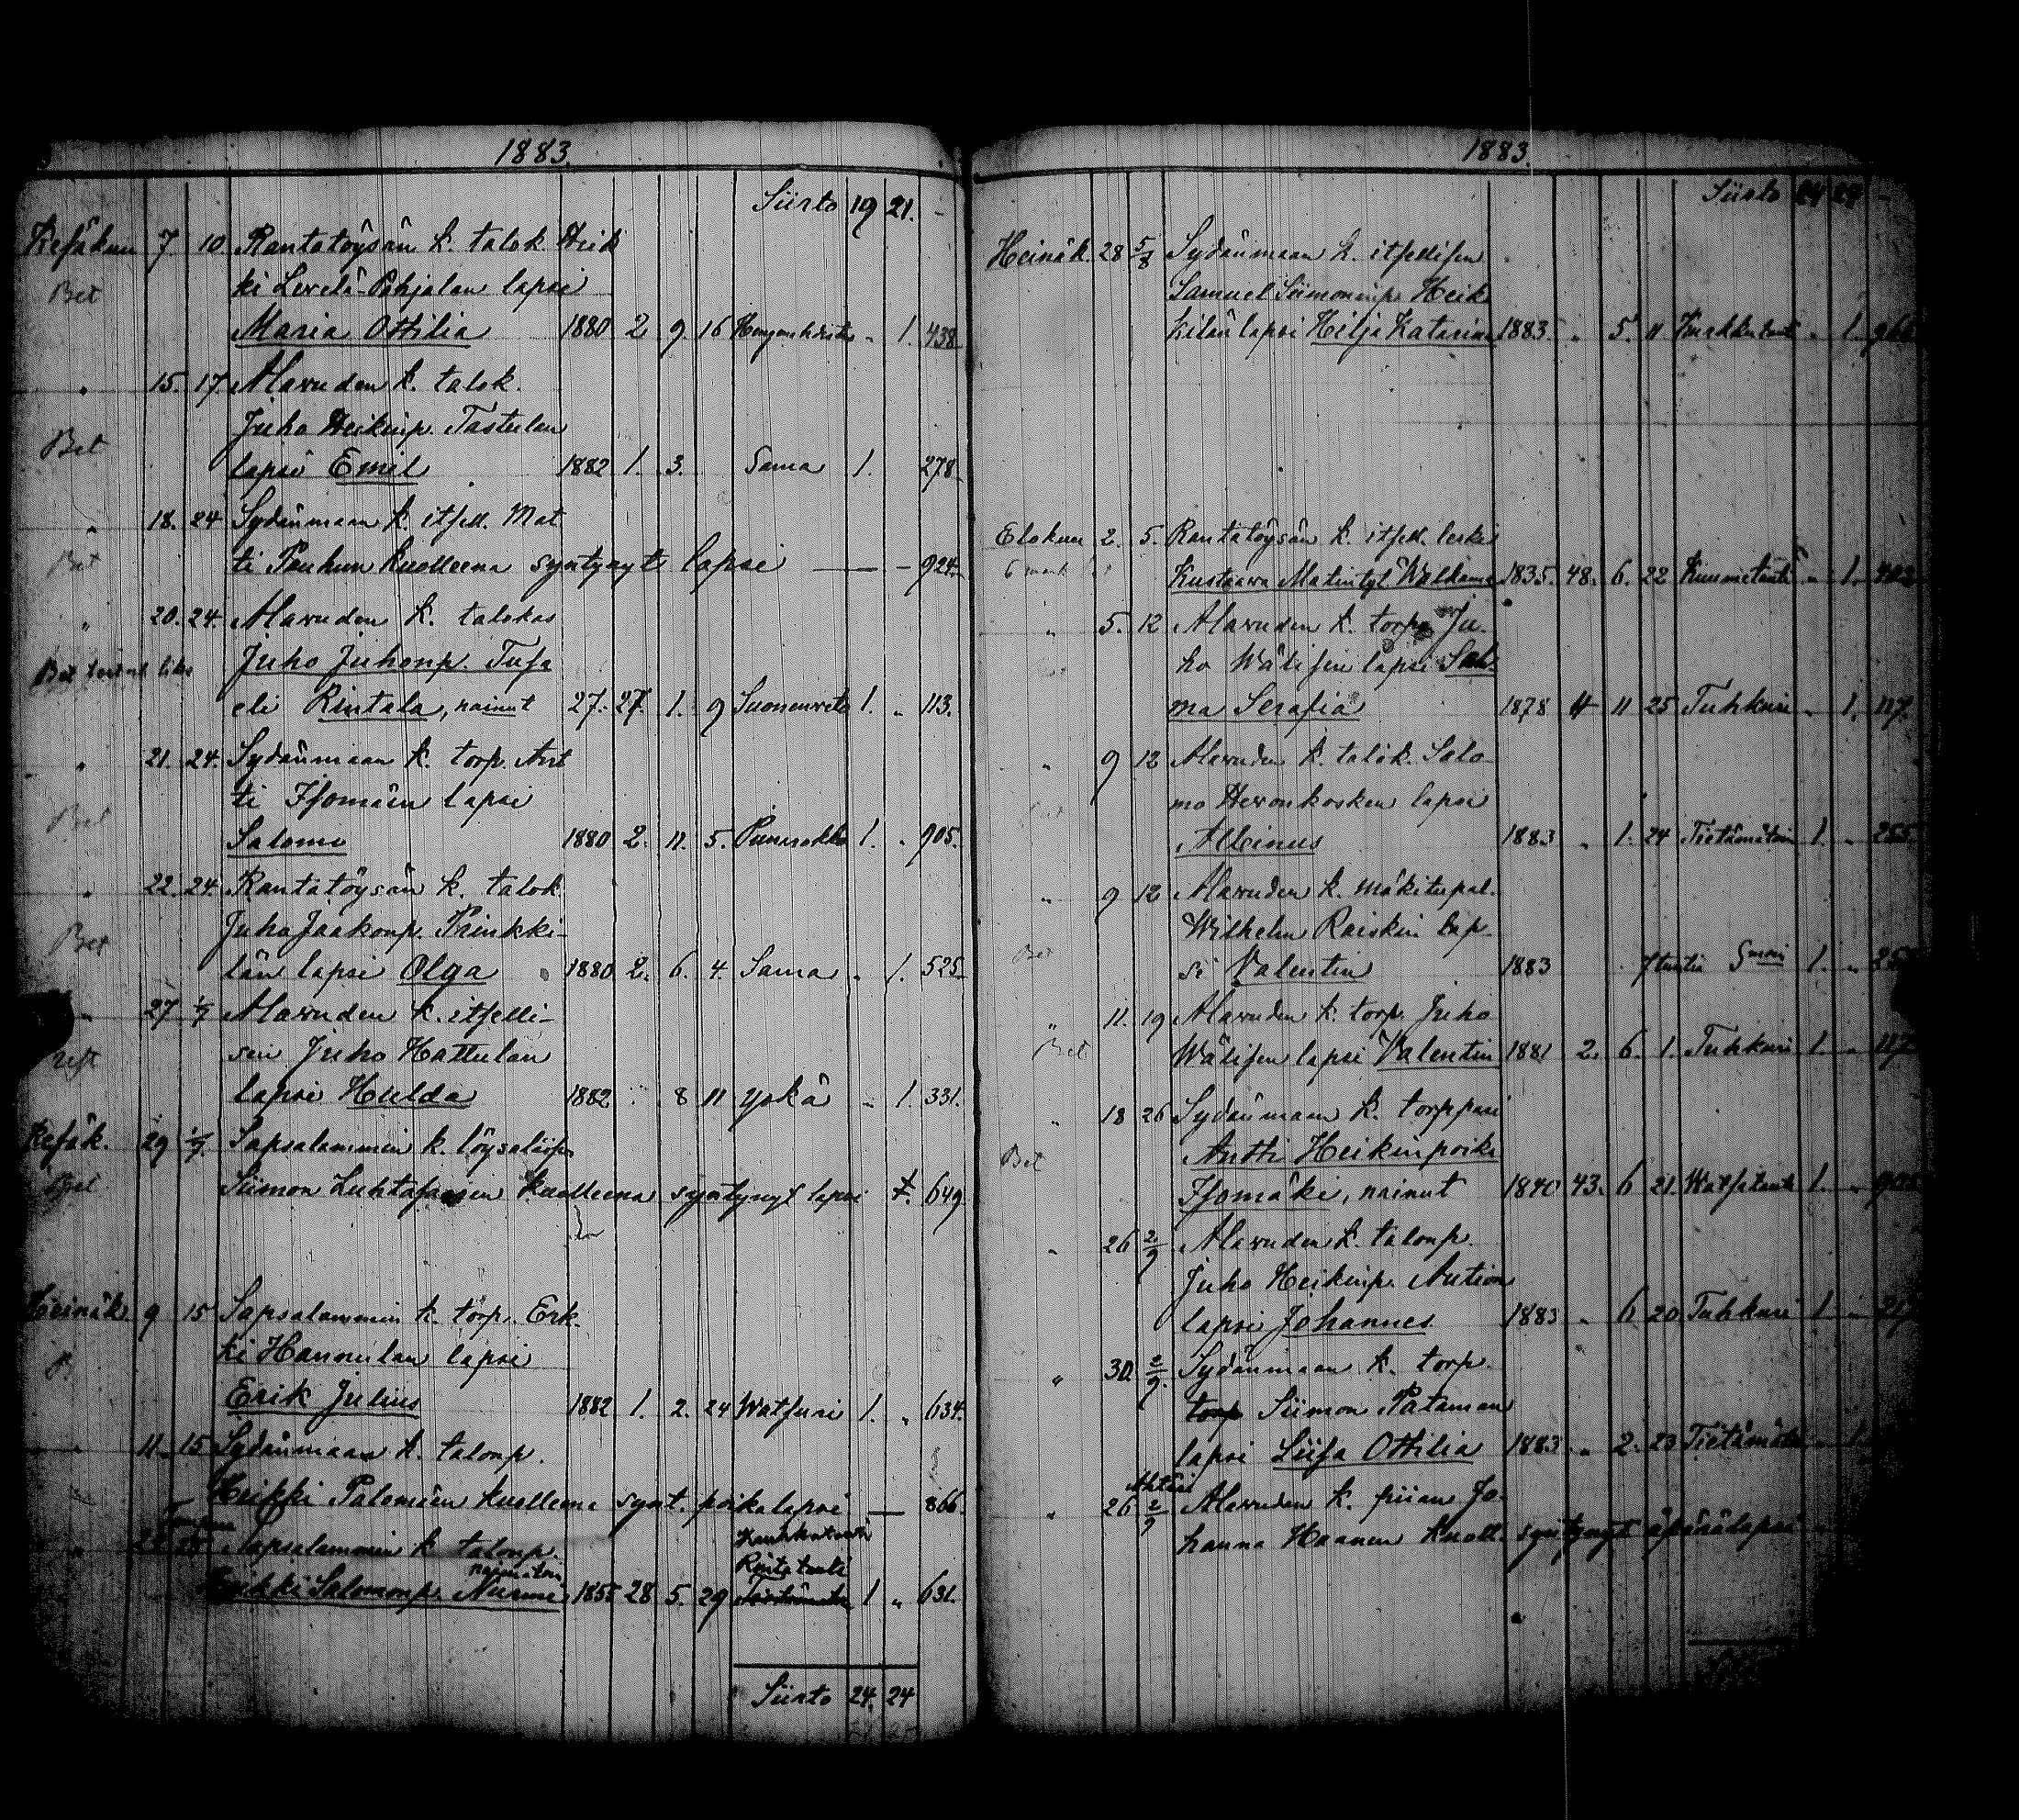 1883.
Siirto 19 21. -
Kesäkuu 7. 10. Rantatöysän k. talok. Heik
Bet ki Leretä-Pohjalan lapsi
Maria Ottilia 1880 2 9 16 Hengenahdistus " 1. 438
" 15. 17. Alavuden k. talok.
Juho Heikinp. Tastulan
Bet lapsi Emil 1882 1. 3. Sama 1. 278
" 18. 24 Sydänmaan k. itsell. Mat
Bet ti Pauhun kuolleena syntynyt lapsi — - 924
" 20. 24. Alavuden k. talokas
Juho Juhonp. Tusa
Bet
eli Rintala, nainut 27. 27. 1. 9 1. " 113.
" 21. 24. Sydänmaan k. torp. Ant
ti Isomäen lapsi
Bet
Salomo 1880 2. 11. 5. Punarokko 1. " 905.
" 22. 24. Rantatöysän k. talok
Bet Juho Jaakonp. Prinkki-
län lapsi Olga 1880 2. 6. 4. Sama " 1. 525
" 27 1/7 Alavuden k. itselli-
sen Juho Hattulan
lapsi Hulda 1882 8 11 yskä " 1. 331.
Kesäk. 29 1/7. Sapsalammin k. löysäliöp.
Bet Siimon Luhtasaaren kuolleena syntynyt lapsi 649
Heinäk. 9 15 Sapsalammin k. torp. Erk-
ki Hannulan lapsi
Erik Julius 1882 1. 2. 24 Watsuri 1. " 634.
" 11. 15 Sydänmaan k. talonp.
Heikki Palomäen kuolleena synt. poikalapsi — 866.
Sapsalammin k. talonp.
Keuhkotauti
naimaton Rintatauti
Heikki Salomonp. Nurmi 1855 28 5. 29 1 " 631.
Siirto 24. 24
1883.
Siirto 24 24 -
Heinäk. 28 5/8 Sydänmaan k. itsellisen
Samuel Siimoninp. Heik
kilän lapsi Hilja Katarina 1883 " 5. 11 " 1.
Elokuu 2. 5. Rantatöysän k. itsell. leski
Kustaava Matintyt. Walkama 1835. 48. 6. 22 " 1.
" 5. 12 Alavuden k. torp. Ju-
ho Wälisen lapsi Sal
ma Serafia 1878 4 11 25 Tuhkuri " 1. 117.
" 9 12 Alavuden k. talok. Salo-
mo Heronkosken lapsi
Albinus 1883 " 1. 24 Tietämätöin 1. " 255.
" 9 12 Alavuden k. mäkitupal.
Wilhelm Raiskin lap-
Bet si Valentin 1883 7 tuntia 1. "
" 11. 19 Alavuden k. torp. Juho
Bet Wälisen lapsi Valentin 1881 2. 6. 1. Tuhkuri 1. " 117
" 18 26 Sydänmaan k. torppari
Bet Antti Heikinpoika
Isomäki, nainut 1840 43. 6 21. Watsatauti 1. "
" 26 2/9 Alavuden k. talonp.
Juho Heikinp. Aution
lapsi Johannes 1883 " 6 20 Tuhkuri 1. "
" 30. 2/9. Sydänmaan k. torp.
torp Siimon Pataman
lapsi Liisa Ottilia 1883 " 2. 23 Tietämätöin " 1.
" 26 2/9 Alavuden k. piian Jo-
hanna Haanen kuoll. syntynyt äpärälapsi